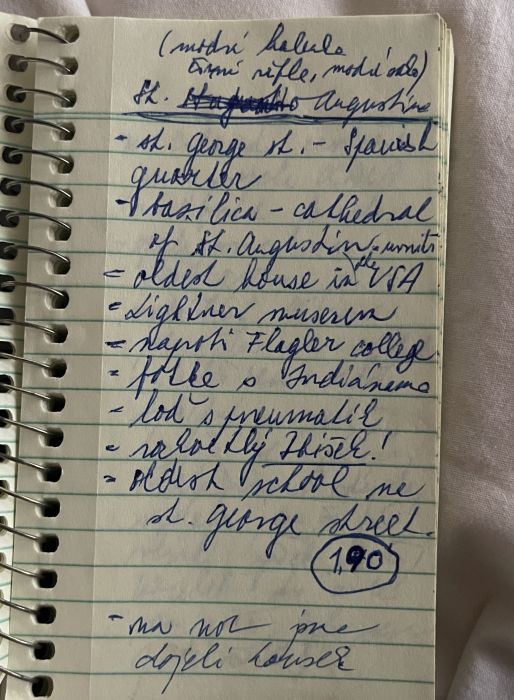 (modrá halula
černé rifle, modré oči)
St. Augustine
- st. george st. - Spanish
quarter
- basilica - cathedral
of St. Augustin - unitř.
- oldest house in the USA
- Lightner museum
- naproti Flagler college
- fotce s Indiánama
- loď s pneumatik
- rozkošný Zbišek!
- oldest school na
st. george street.
1,90
- na noc jsme
dojeli